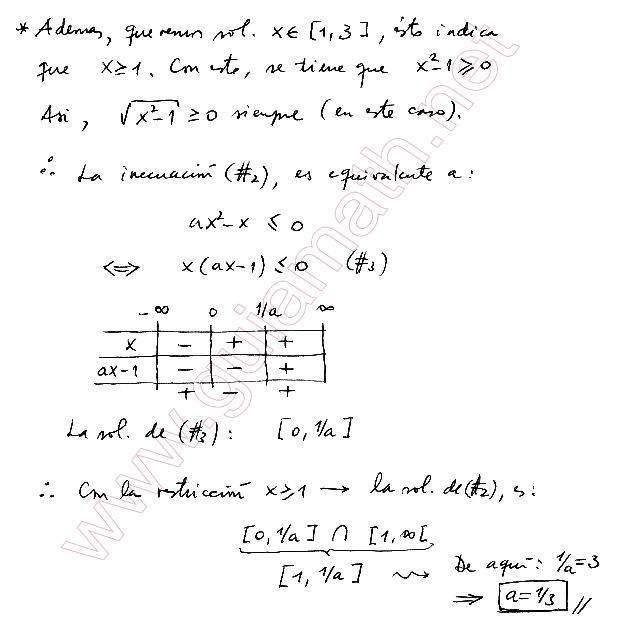 * Ademas, queremos sol. x ∈ [1,3], ésto indica
que x ≥ 1. Con esto, se tiene que x²-1 ≥ 0
Asi, √x²-1 ≥ 0 siempre (en este caso).
∴ La inecuación (#2), es equivalente a:
ax²-x ≤ 0
⟺ x(ax-1) ≤ 0 (#3)
-∞ 0 1/a ∞
x - + +
ax-1 - - +
+ - +
La sol. de (#3): [0, 1/a]
∴ Con la restricción x ≥ 1 → la sol. de (#2), es:
[0, 1/a] ∩ [1, ∞[
[1, 1/a] ⇝ De aquí: 1/a = 3
⟹ a = 1/3 //
www.guiamath.net